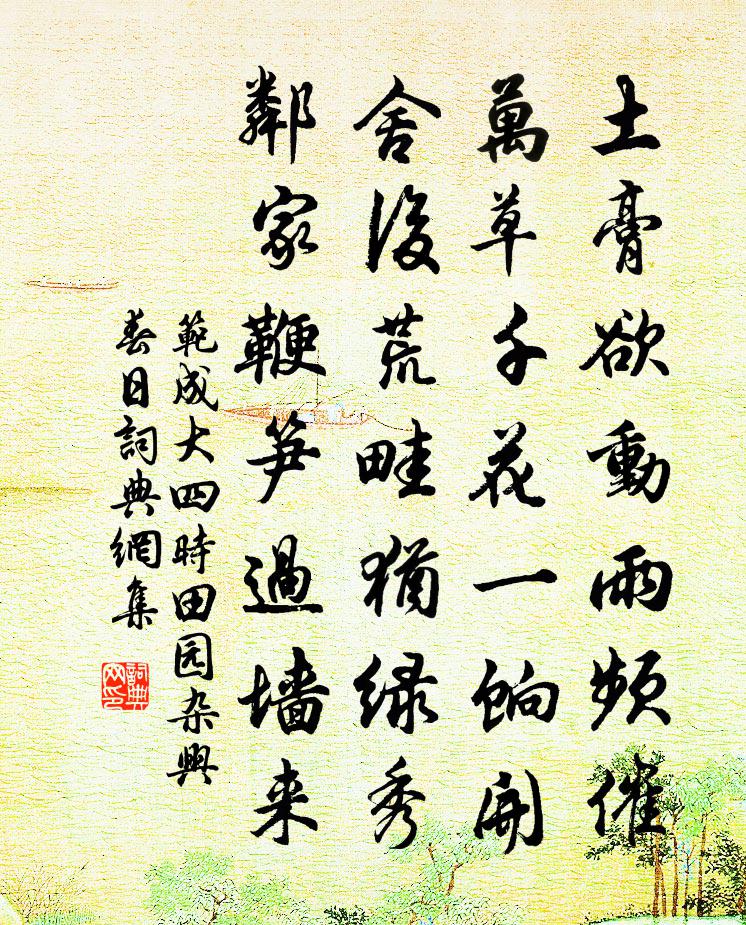 土膏欲動雨頻催
萬草千花一餉開
舍後荒畦猶绿秀
鄰家鞭笋過墙来
範成大四時田园杂興
春日詞典網集
詞典網印